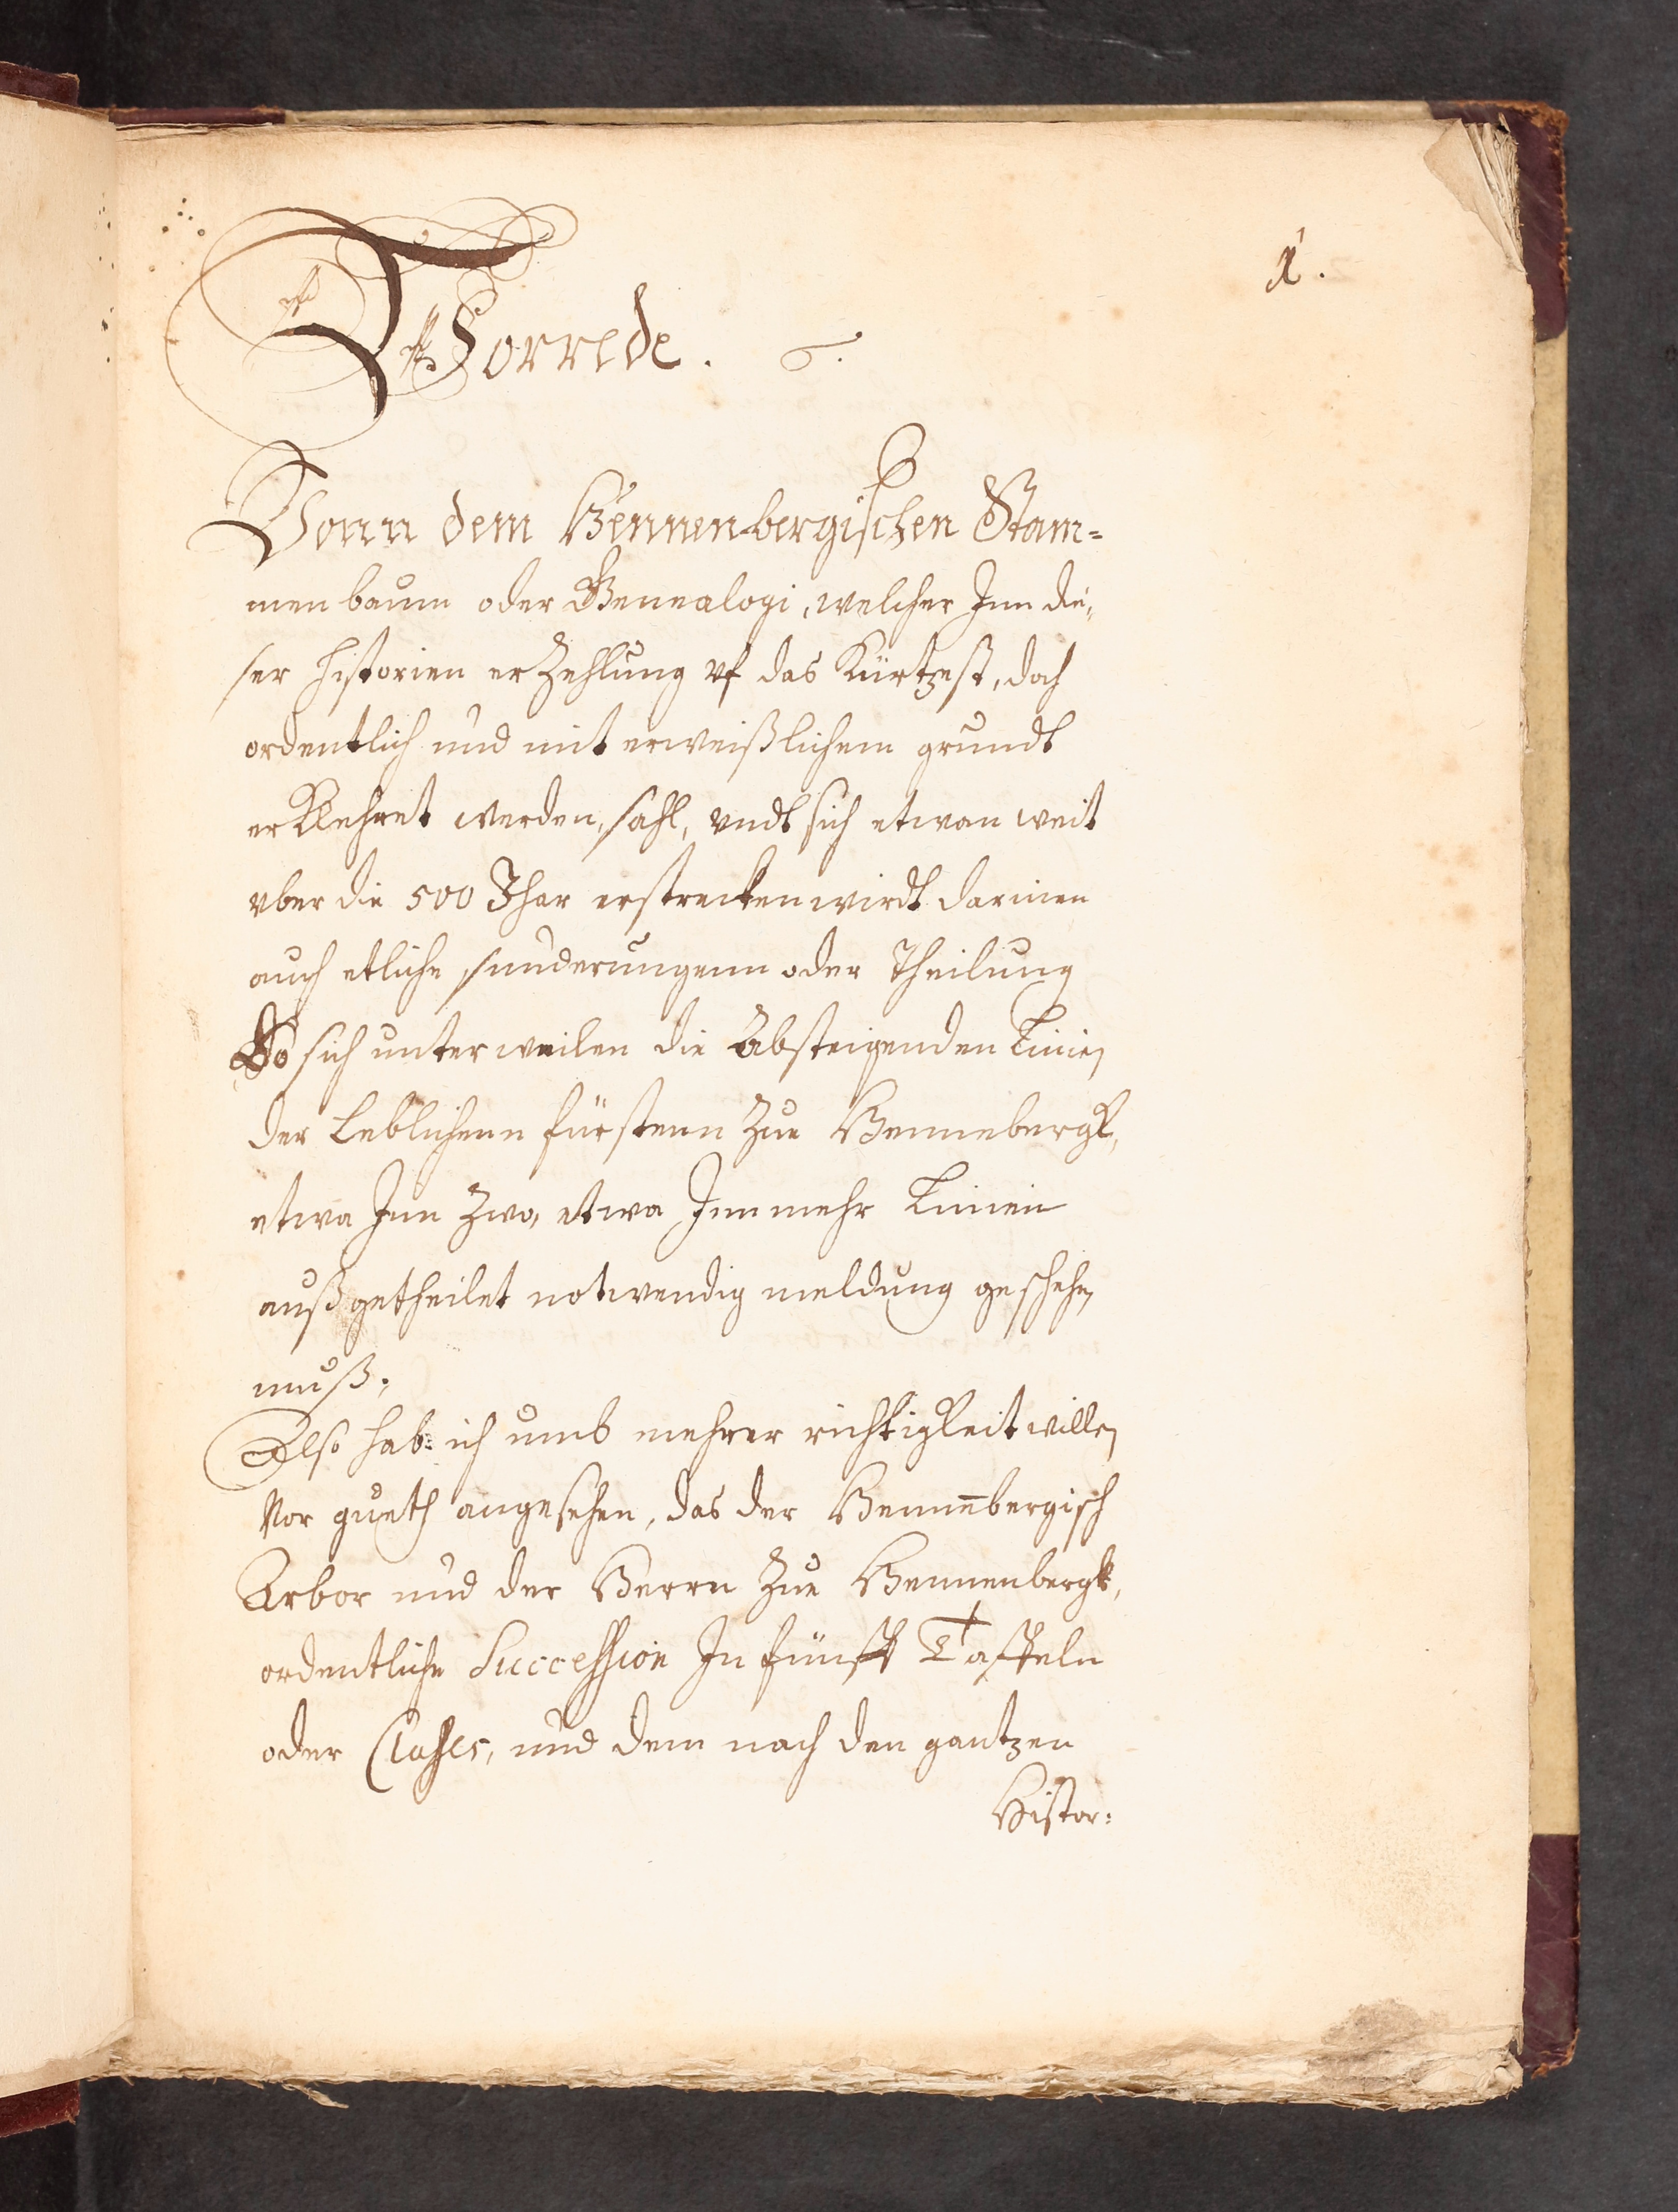 1.
Vorrede.
Vonn dem Hennenbergischen Stam=
men baum oder Genealogi, welcher Inn die,
ser historien erZehlung vf das Kürtzest, doch
ordentlich und mit erweißlichem grundt
erKlehret werden, sahl, vndt sich etwan weit
vber die 500 Jhar erstrecken wirdt darinen
auch etliche sunderungenn oder Theilung
So sich unterweilen die Absteigenden Linien
der Leblichenn fürstenn Zue Hennebergk,
etwa Inn Zwo, etwa Inn mehr Linien
außgetheilet notwendig meldung geschehen
muß,
Also hab: ich umb mehrer richtigkeit willen
Vor gueth angesehen, das der Hennenbergisch
Arbor und der Herrn Zue Hennenbergk,
ordentliche Succession In fünff Taffeln
oder Classes, und dem nach den gantzen
Histor: